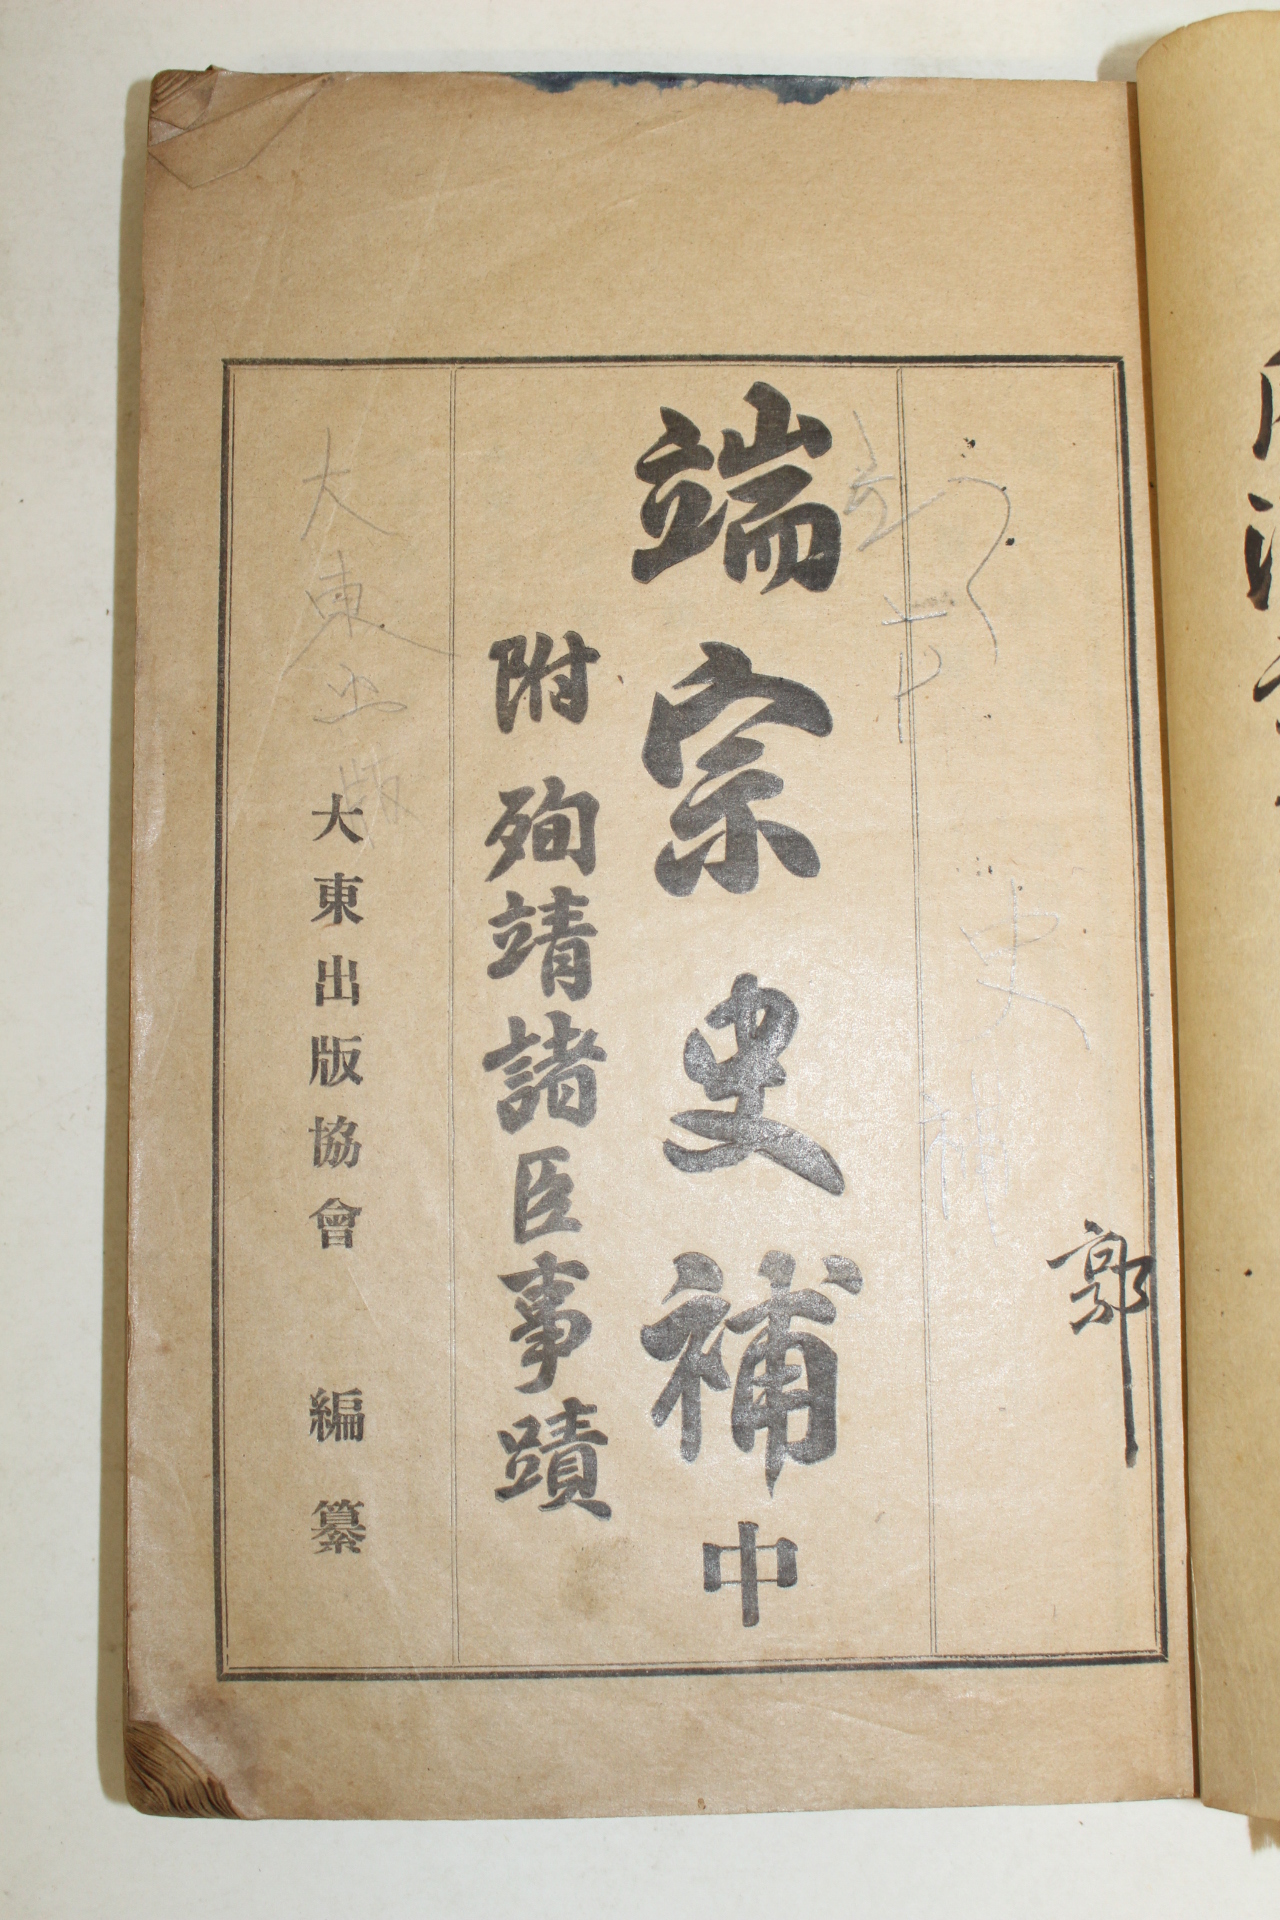 郭
端宗史補 中
附 殉靖諸臣事蹟
大東出版協會 編纂
史補
大東出版